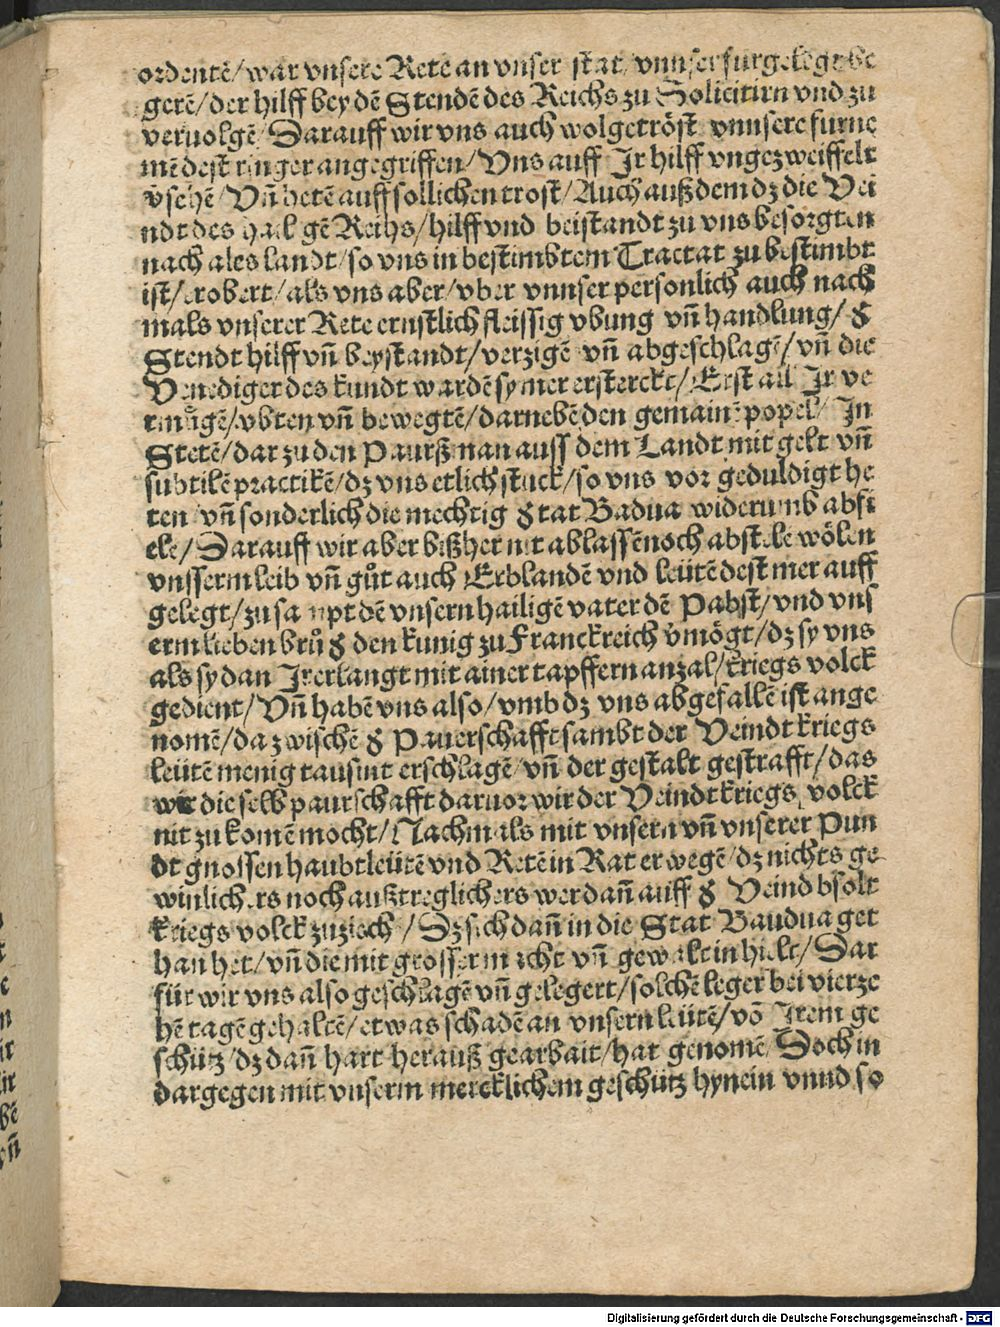 ordentē/war vnsere Rete an vnser stat/ vnnser furgelegt be
gerē/der hilff bey dē Stendē des Reichs zu Solicitirn vnd zu
veruolgē/Darauff wir vns auch wolgetröst vnnsere furne
mē dest ringer angegriffen/Vns auff Jr hilff vngezweiffelt
v̄sehē/Vn̄ hetē auff sollichen trost/Auch auß dem dz die Vei
ndt des hailgē Reihs/hilff vnd beistandt zu vns besorgten
nach ales landt/so vns in bestimbtem Tractat zu bestimbt
ist/erobert/als vns aber/vber vnnser personlich auch nach
mals vnserer Rete ernstlich fleissig vbung vn̄ handlung/ d̄
Stendt hilff vn̄ beystandt/verzigē vn̄ abgeschlagē/vn̄ die
Venediger des kundt wardē sy mer ersterckt/Erst all Jr ve
rmůgē/vbten vn̄ bewegtē/darnebē den gemainē popel/ Jn
Stetē/dar zu den Paurßman auss dem Landt mit gelt vn̄
subtilē practikē/dz vns etlich stuck/so vns vor geduldigt he
ten vn̄ sonderlich die mechtig stat Badua widerumb absi
ele/Darauff wir aber bißher nit ablassē noch abstele wölen
vnsserm leib vn̄ gůt auch Erblandē vnd leütē dest mer auff
gelegt/zu sampt dē vnsern hailigē vater dē Pabst/vnd vns
erm lieben brůd̄ den kunig zu Franckreich v̄mögt/dz sy vns
als sy dan Jr erlangt mit ainer tapffern anzal/kriegs volck
gedient/Vn̄ habē vns also/vmb dz vns abgefallē ist ange
nomē/da zwischē d̄ Pauerschafft sambt der Veindt kriegs
leütē menig tausint erschlagē vn̄ der gestalt gestrafft/das
wir die selb paurschafft daruor wir der Veindt kriegs volck
nit zu komē mocht/Nachmals mit vnsern vn̄ vnserer Pun
dtgnossen haubtleütē vnd Retē in Rat er wegē/dz nichts ge
winlichers noch außtreglichers wer dan̄ auff d̄ Veind bsolt
kriegs volck zuziech/Dz sich dan̄ in die Stat Baudua get
han het/vn̄ die mit grosser macht vn̄ gewalt in hielt/Dar
für wir vns also geschlagē vn̄ gelegert/solchē leger bei vierze
hē tagē gehaltē/etwas schadē an vnsern leütē/vō Jrem ge
schütz/dz dan̄ hart herauß gearbait/hat genomē/Doch in
dargegen mit vnserm mercklichem geschütz hynein vnnd so
Digitalisierung gefördert durch die Deutsche Forschungsgemeinschaft - DFG